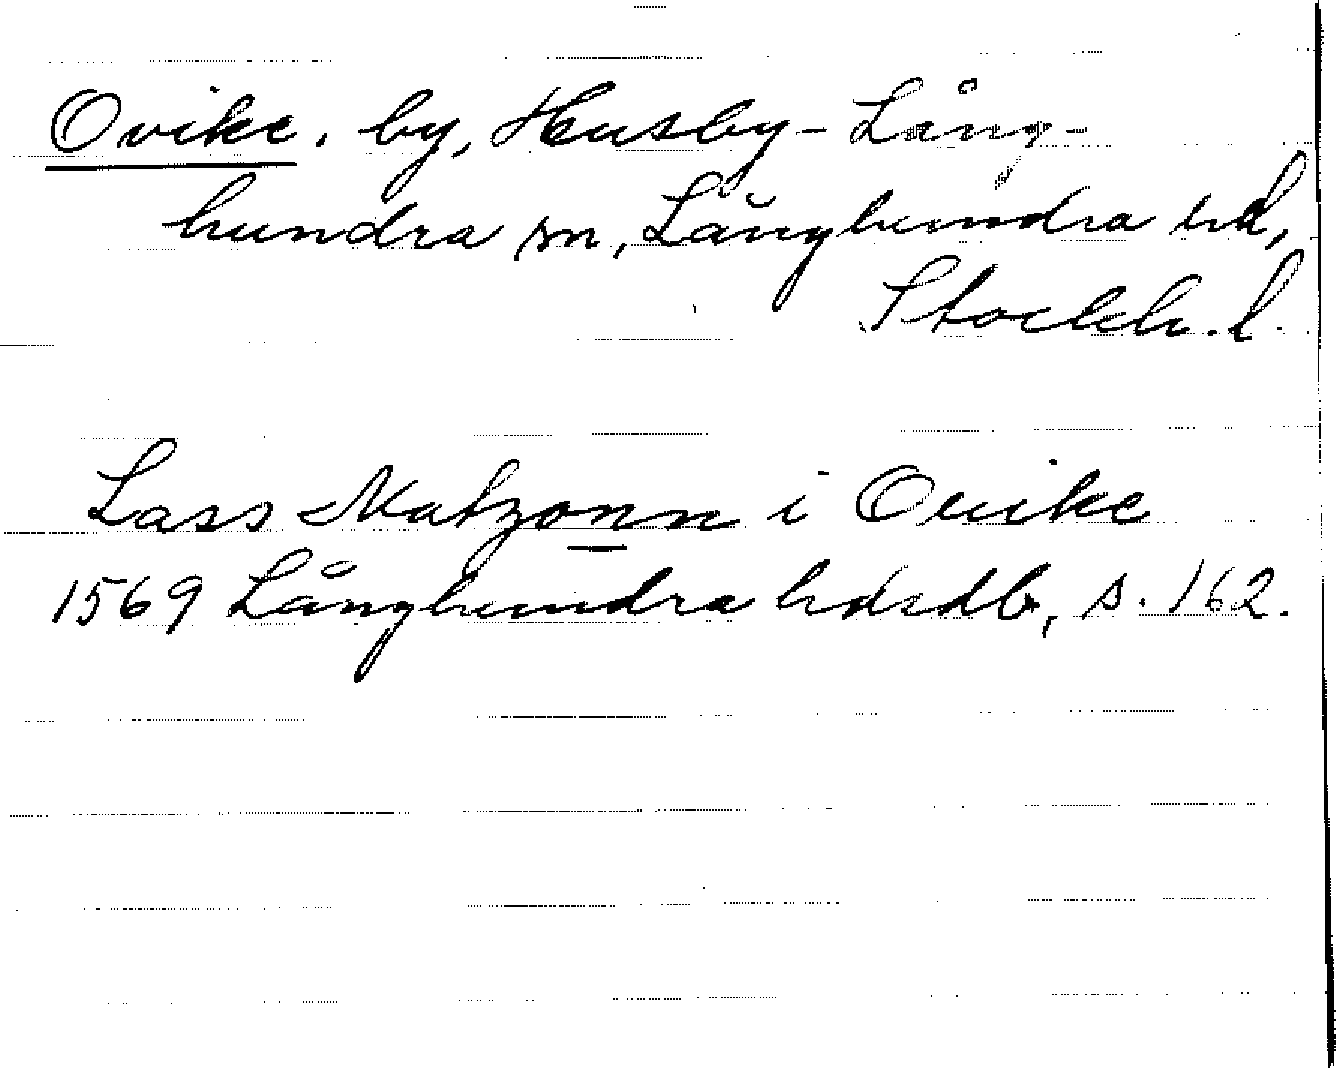 Ovike, by, Husby-Lång-
hundra sn, Långhundra hd,
Stockh. l.
Lass Matzonn i Ouike
1569 Långhundra hdsdb, s. 162.